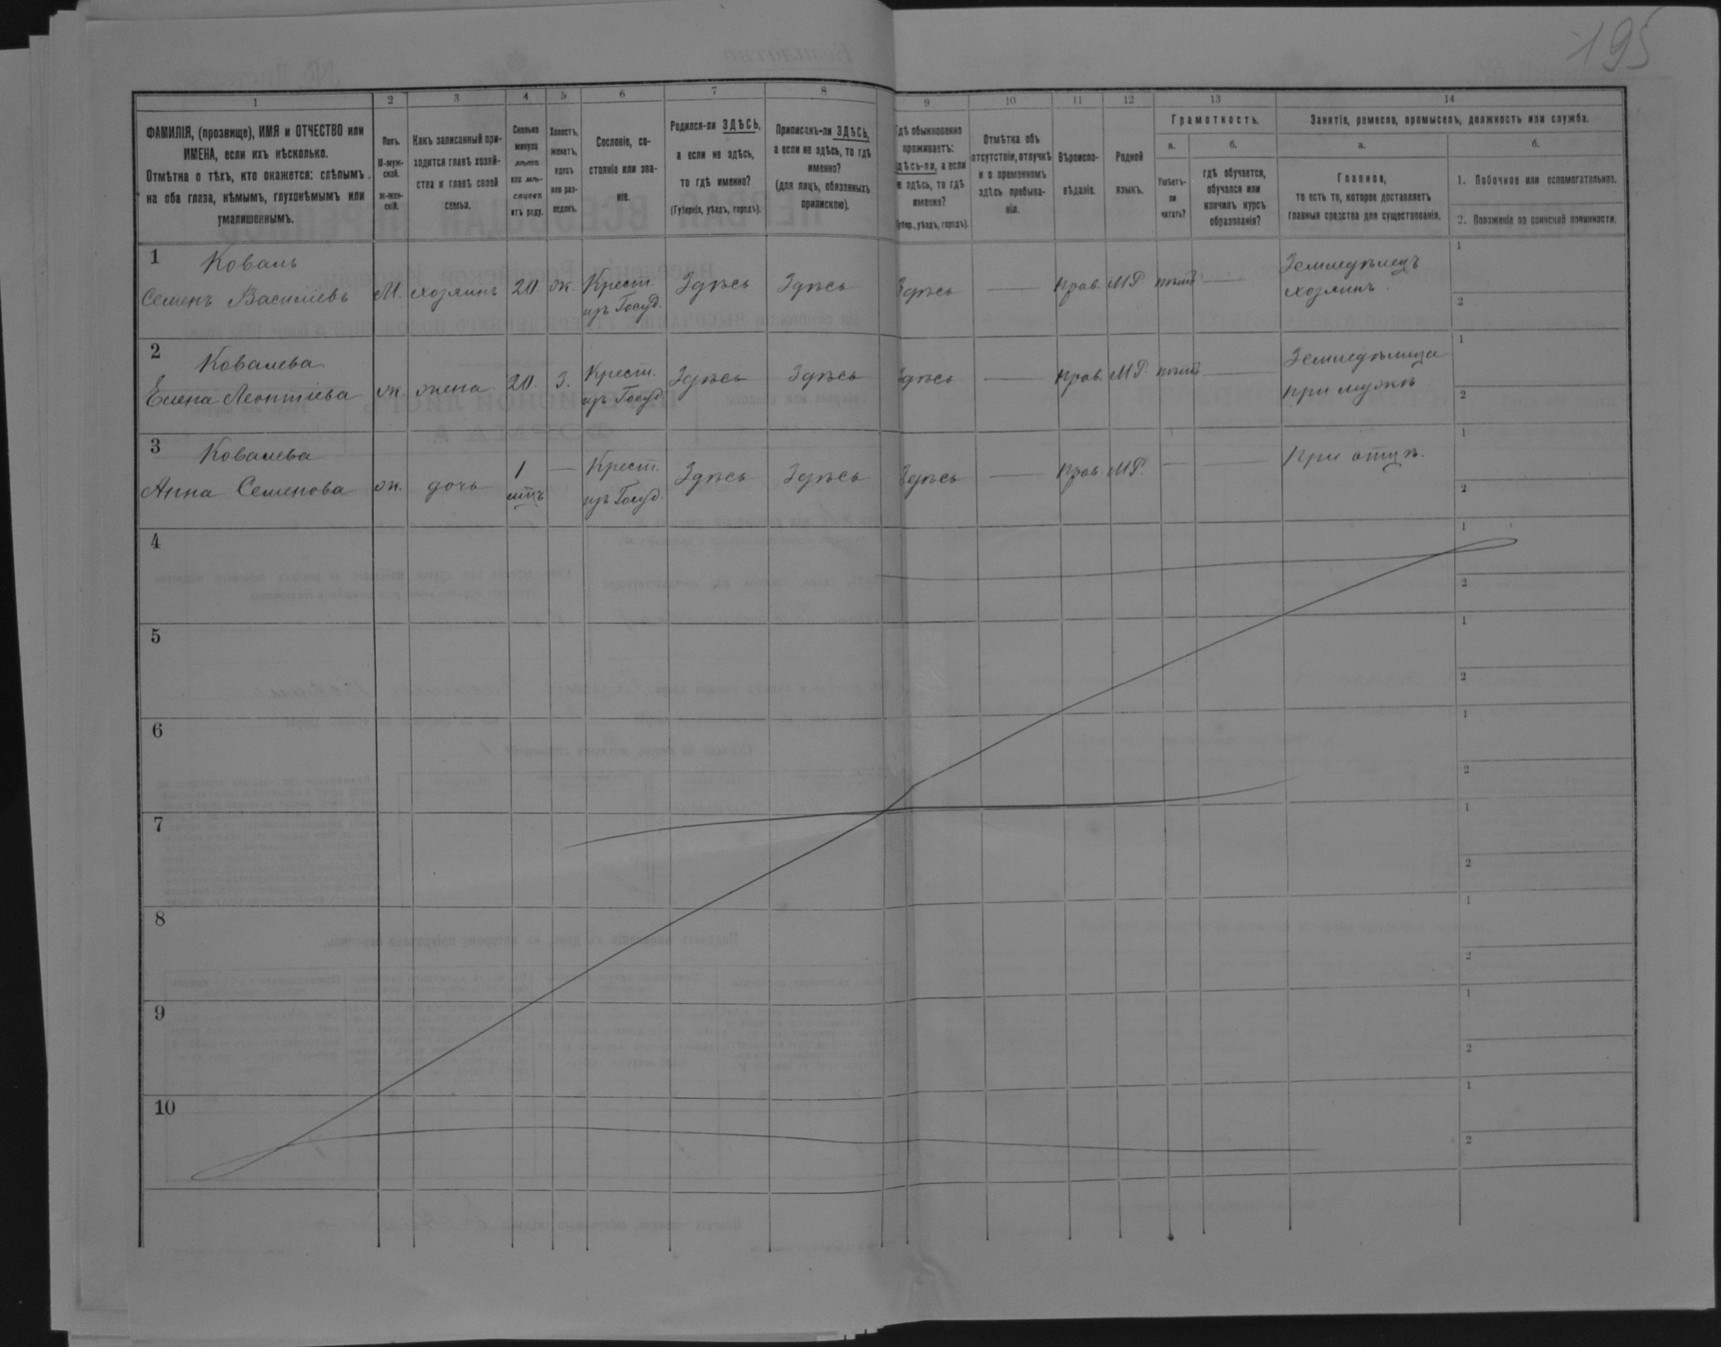 195
1 2 3 4 5 6 7 8 9 10 11 12 13 14
ФАМИЛІЯ, (прозвище), ИМЯ и ОТЧЕСТВО или
ИМЕНА, если ихъ нѣсколько.
Отмѣтка о тѣхъ, кто окажется: слѣпымъ
на оба глаза, нѣмымъ, глухонѣмымъ или
умалишеннымъ.
Полъ.
М-муж-
ской.
Ж-жен-
скій.
Какъ записанный при-
ходится главѣ хозяй-
ства и главѣ своей
семьи.
Сколько
минуло
лѣтъ
или мѣ-
сяцевъ
отъ роду.
Холостъ,
женатъ,
вдовъ
или раз-
веденъ.
Сословіе, со-
стояніе или зва-
ніе.
Родился-ли ЗДѢСЬ,
а если не здѣсь,
то гдѣ именно?
(Губернія, уѣздъ, городъ).
Приписанъ-ли ЗДѢСЬ,
а если не здѣсь, то гдѣ
именно?
(для лицъ, обязанныхъ
припискою).
Гдѣ обыкновенно
проживаетъ:
здѣсь-ли, а если
не здѣсь, то гдѣ
именно?
(Губер., уѣздъ, городъ).
Отмѣтка объ
отсутствіи, отлучкѣ
и о временномъ
здѣсь пребыва-
ніи.
Вѣроиспо-
вѣданіе.
Родной
языкъ.
Грамотность.
а.
Умѣетъ-
ли
читать?
б.
гдѣ обучается,
обучался или
кончилъ курсъ
образованія?
Занятіе, ремесло, промыселъ, должность или служба.
а.
Главное,
то есть то, которое доставляетъ
главныя средства для существованія.
б.
1. Побочное или вспомогательное.
2. Положеніе по воинской повинности.
1 Коваль
Семенъ Васильевъ М. хозяинъ 20 ж Крест. изъ Госуд. Здѣсь Здѣсь Здѣсь — Прав. МР нѣтъ — Земледѣлецъ хозяинъ. 1 2
2 Ковалева
Елена Леонтіева ж. жена 20. З. Крест. изъ Госуд. Здѣсь Здѣсь Здѣсь — Прав. МР нѣтъ — Земледѣлица при мужѣ 1 2
3 Ковалева
Анна Семенова ж. дочь 1 — Крест. изъ Госуд. Здѣсь Здѣсь Здѣсь — Прав. МР. — — При отцѣ. 1 2
4 1 2
5 1 2
6 1 2
7 1 2
8 1 2
9 1 2
10 1 2